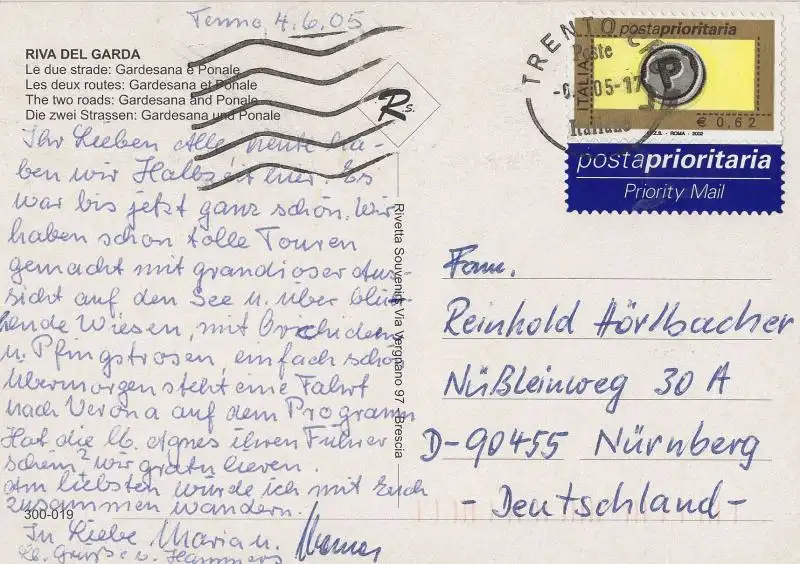 Tenno 4.6.05
RIVA DEL GARDA
Le due strade: Gardesana e Ponale
Les deux routes: Gardesana et Ponale
The two roads: Gardesana and Ponale
Die zwei Strassen: Gardesana und Ponale
Rs.
Ihr Lieben Alle, heute ha-
ben wir Halbzeit hier. Es
war bis jetzt ganz schön. Wir
haben schon tolle Touren
gemacht mit grandioser Aus-
sicht auf den See u. über blü-
hende Wiesen, mit Orchideen
u. Pfingstrosen, einfach schön
Übermorgen steht eine Fahrt
nach Verona auf dem Programm
Hat die lb. Agnes ihren Führer
schein? Wir gratulieren.
Am liebsten würde ich mit Euch
zusammen wandern.
300-019
In Liebe Maria u. Werner
lb. Grüße v. Hammers
Rivetta Souvenir Via Vergnano 97 - Brescia
TRENTO
Poste
Italiane
05-17
postaprioritaria
ITALIA
P
€ 0,62
I.P.Z.S. - ROMA - 2002
postaprioritaria
Priority Mail
Fam.
Reinhold Hörlbacher
Nüßleinweg 30 A
D-90455 Nürnberg
- Deutschland -